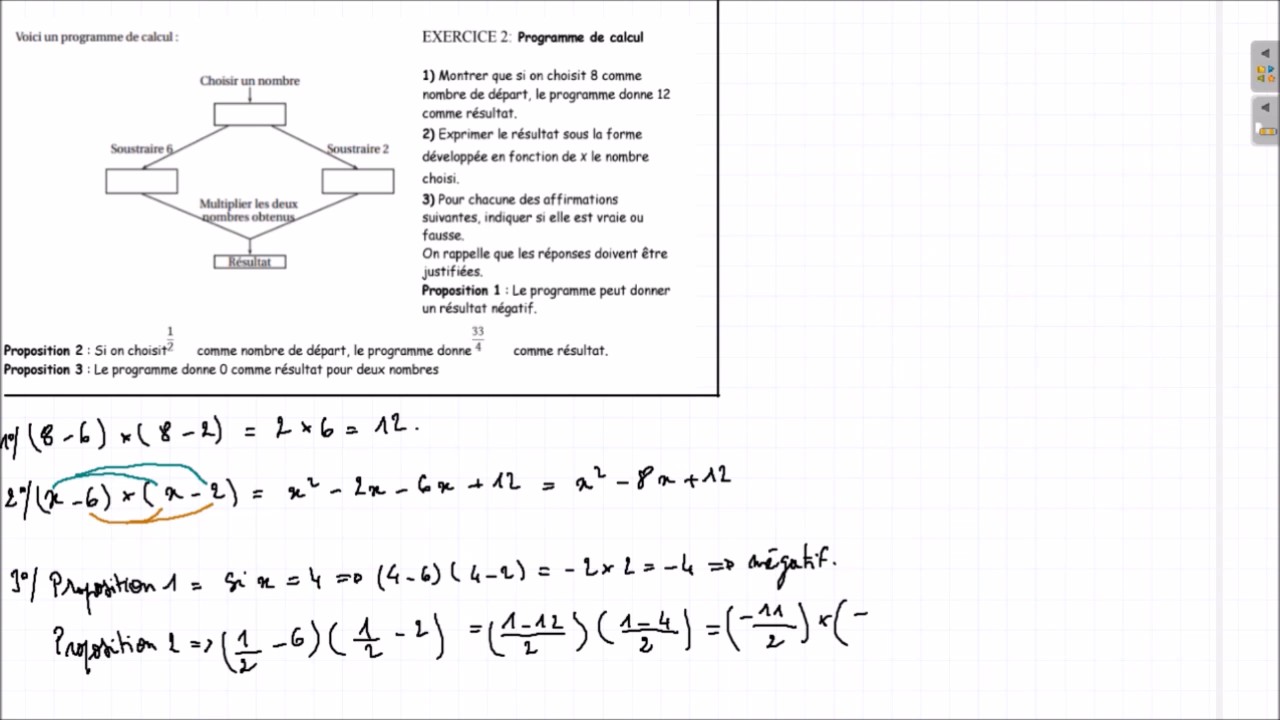 Voici un programme de calcul :
Choisir un nombre
Soustraire 6
Soustraire 2
Multiplier les deux
nombres obtenus
Résultat
EXERCICE 2: Programme de calcul
1) Montrer que si on choisit 8 comme
nombre de départ, le programme donne 12
comme résultat.
2) Exprimer le résultat sous la forme
développée en fonction de x le nombre
choisi.
3) Pour chacune des affirmations
suivantes, indiquer si elle est vraie ou
fausse.
On rappelle que les réponses doivent être
justifiées.
Proposition 1 : Le programme peut donner
un résultat négatif.
Proposition 2 : Si on choisit 1/2 comme nombre de départ, le programme donne 33/4 comme résultat.
Proposition 3 : Le programme donne 0 comme résultat pour deux nombres
1°/ (8-6) × (8-2) = 2 × 6 = 12.
2°/ (x-6) × (x-2) = x² - 2x - 6x + 12 = x² - 8x + 12
3°/ Proposition 1 = Si x = 4 => (4-6)(4-2) = -2×2 = -4 => négatif.
Proposition 2 => (1/2 - 6)(1/2 - 2) = (1-12/2)(1-4/2) = (-11/2) × (-